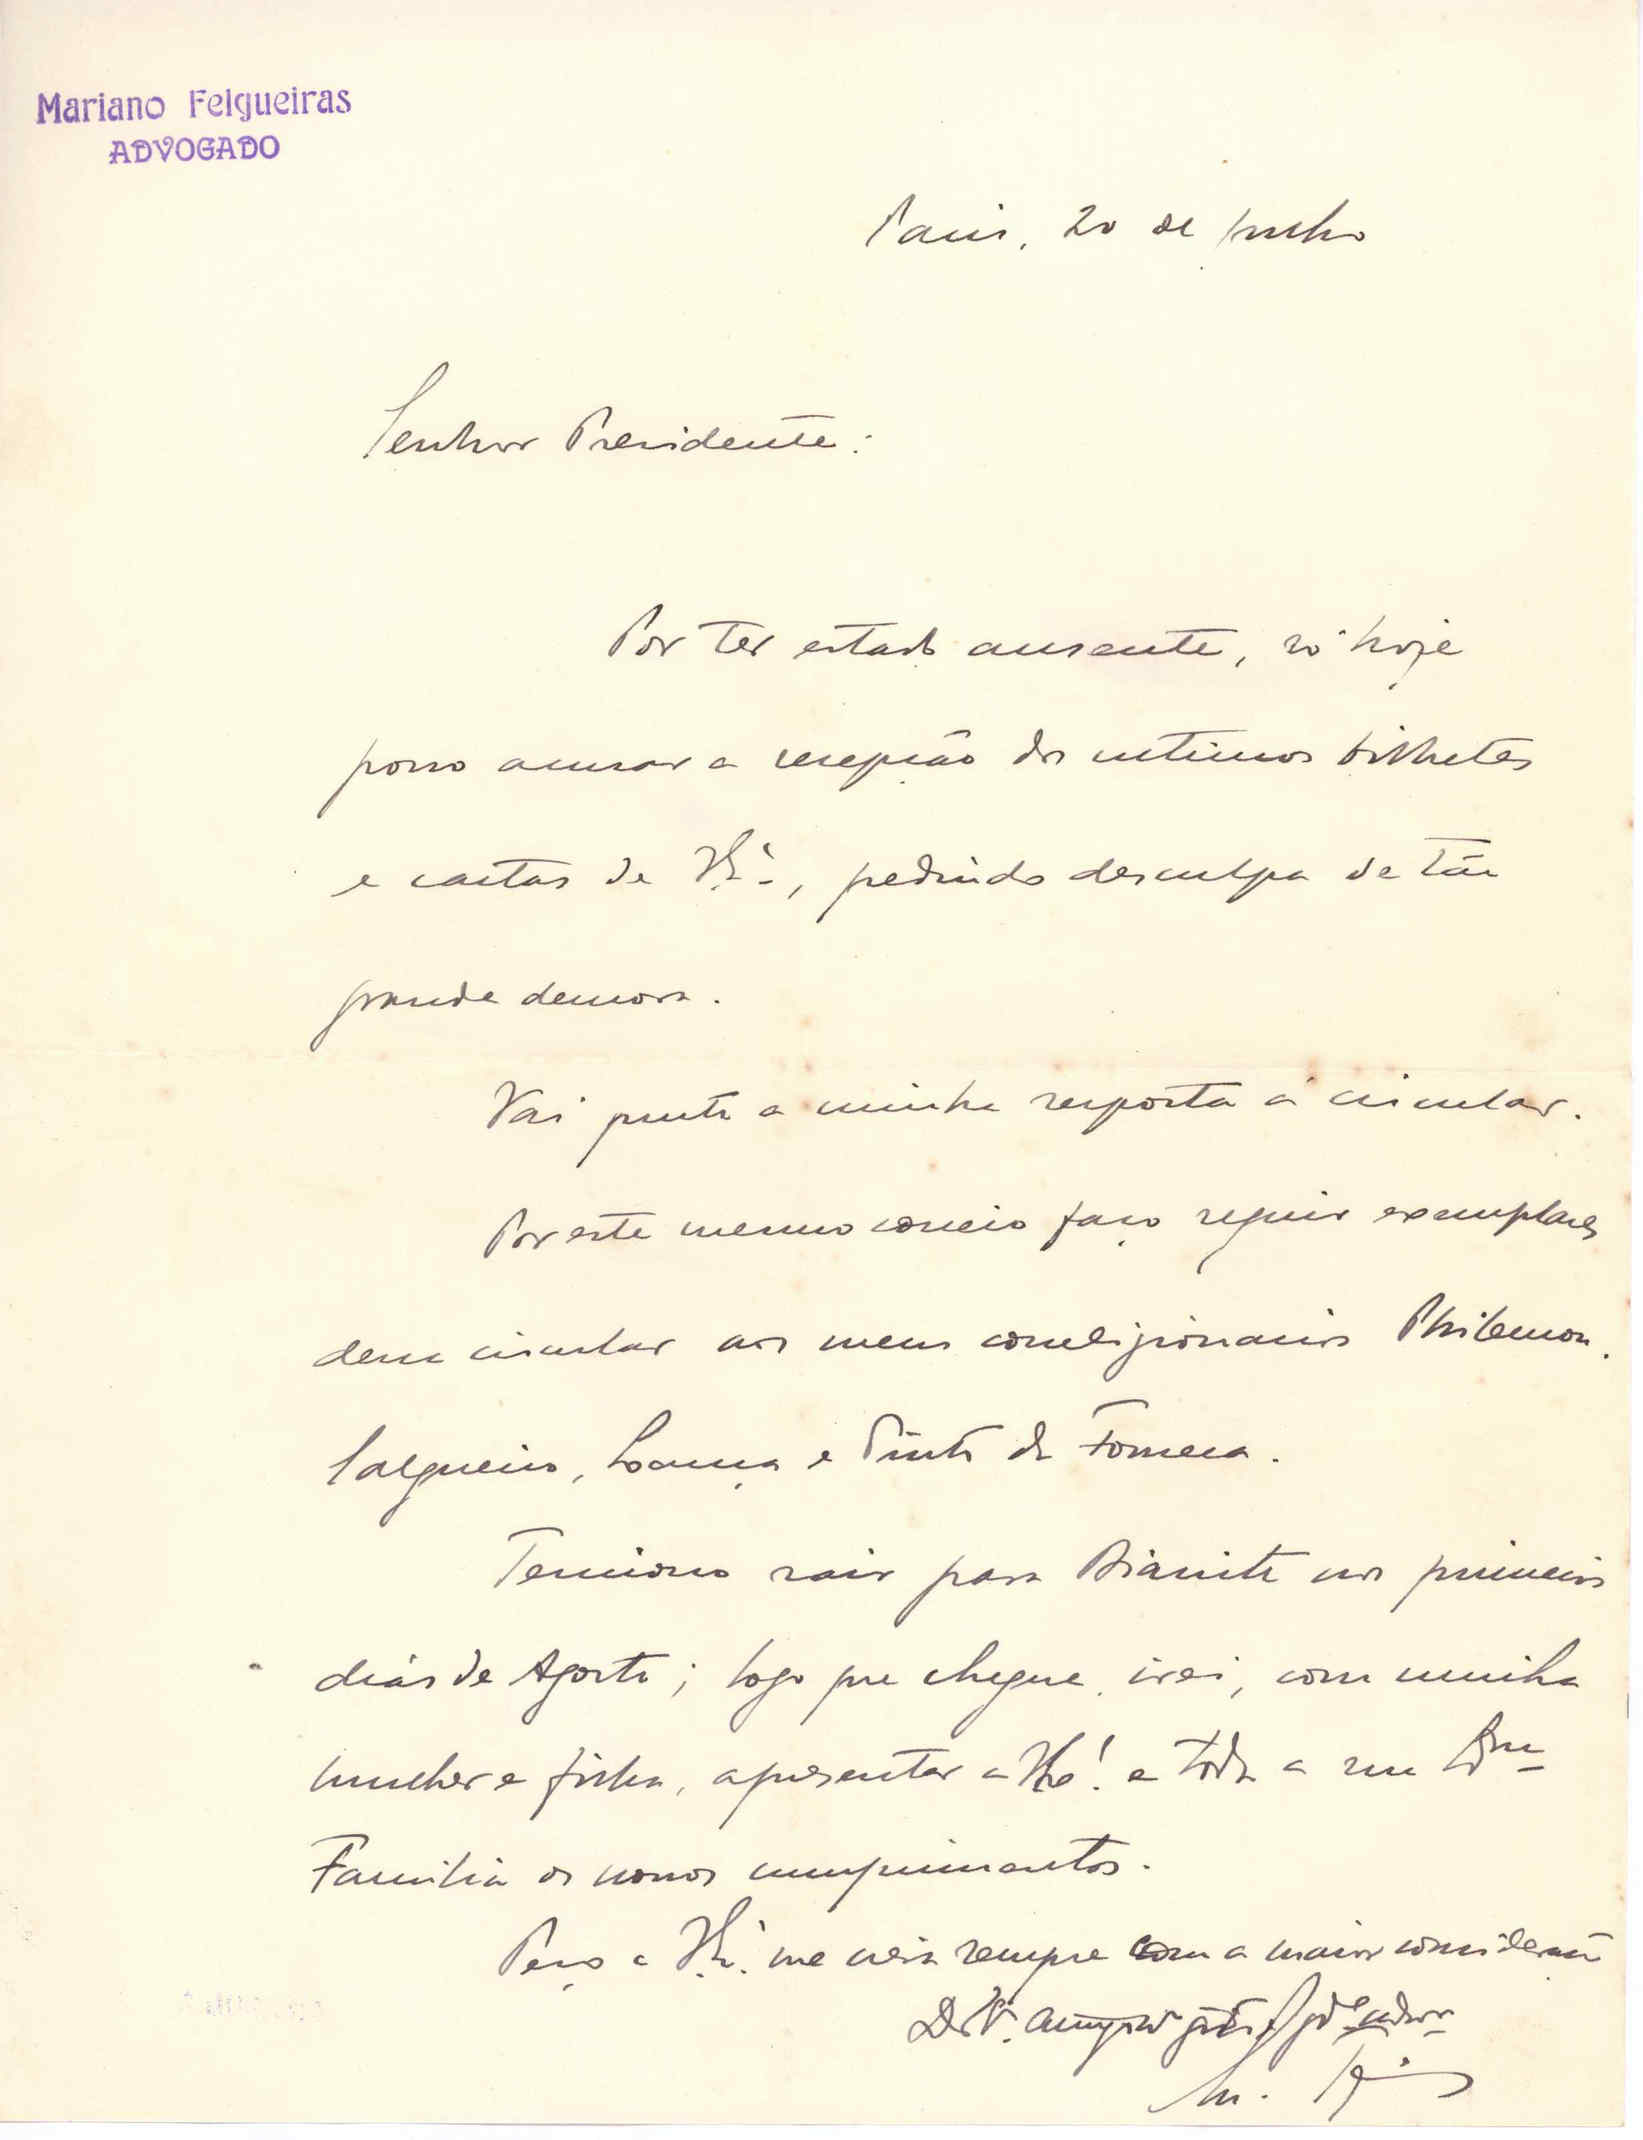 Mariano Felgueiras
ADVOGADO
Paris, 20 de Julho
Senhor Presidente:
Por ter estado ausente, só hoje
posso acusar a recepção dos ultimos bilhetes
e cartas de V. Ex.ª, pedindo desculpa de tão
grande demora.
Vai junta a minha resposta á circular.
Por este mesmo correio faço seguir exemplares
dessa circular aos meus correligionarios Philemon
Salgueiro, Lourença e Pinto da Fonseca.
Tenciono sair para Biarritz nos primeiros
dias de Agosto; logo que chegue, irei, com minha
mulher e filha, apresentar a V. Ex.ª e toda a sua Ex.ma
Familia os nossos cumprimentos.
Peço a V. Ex.ª me creia sempre com a maior consideração
De V.
M. F.